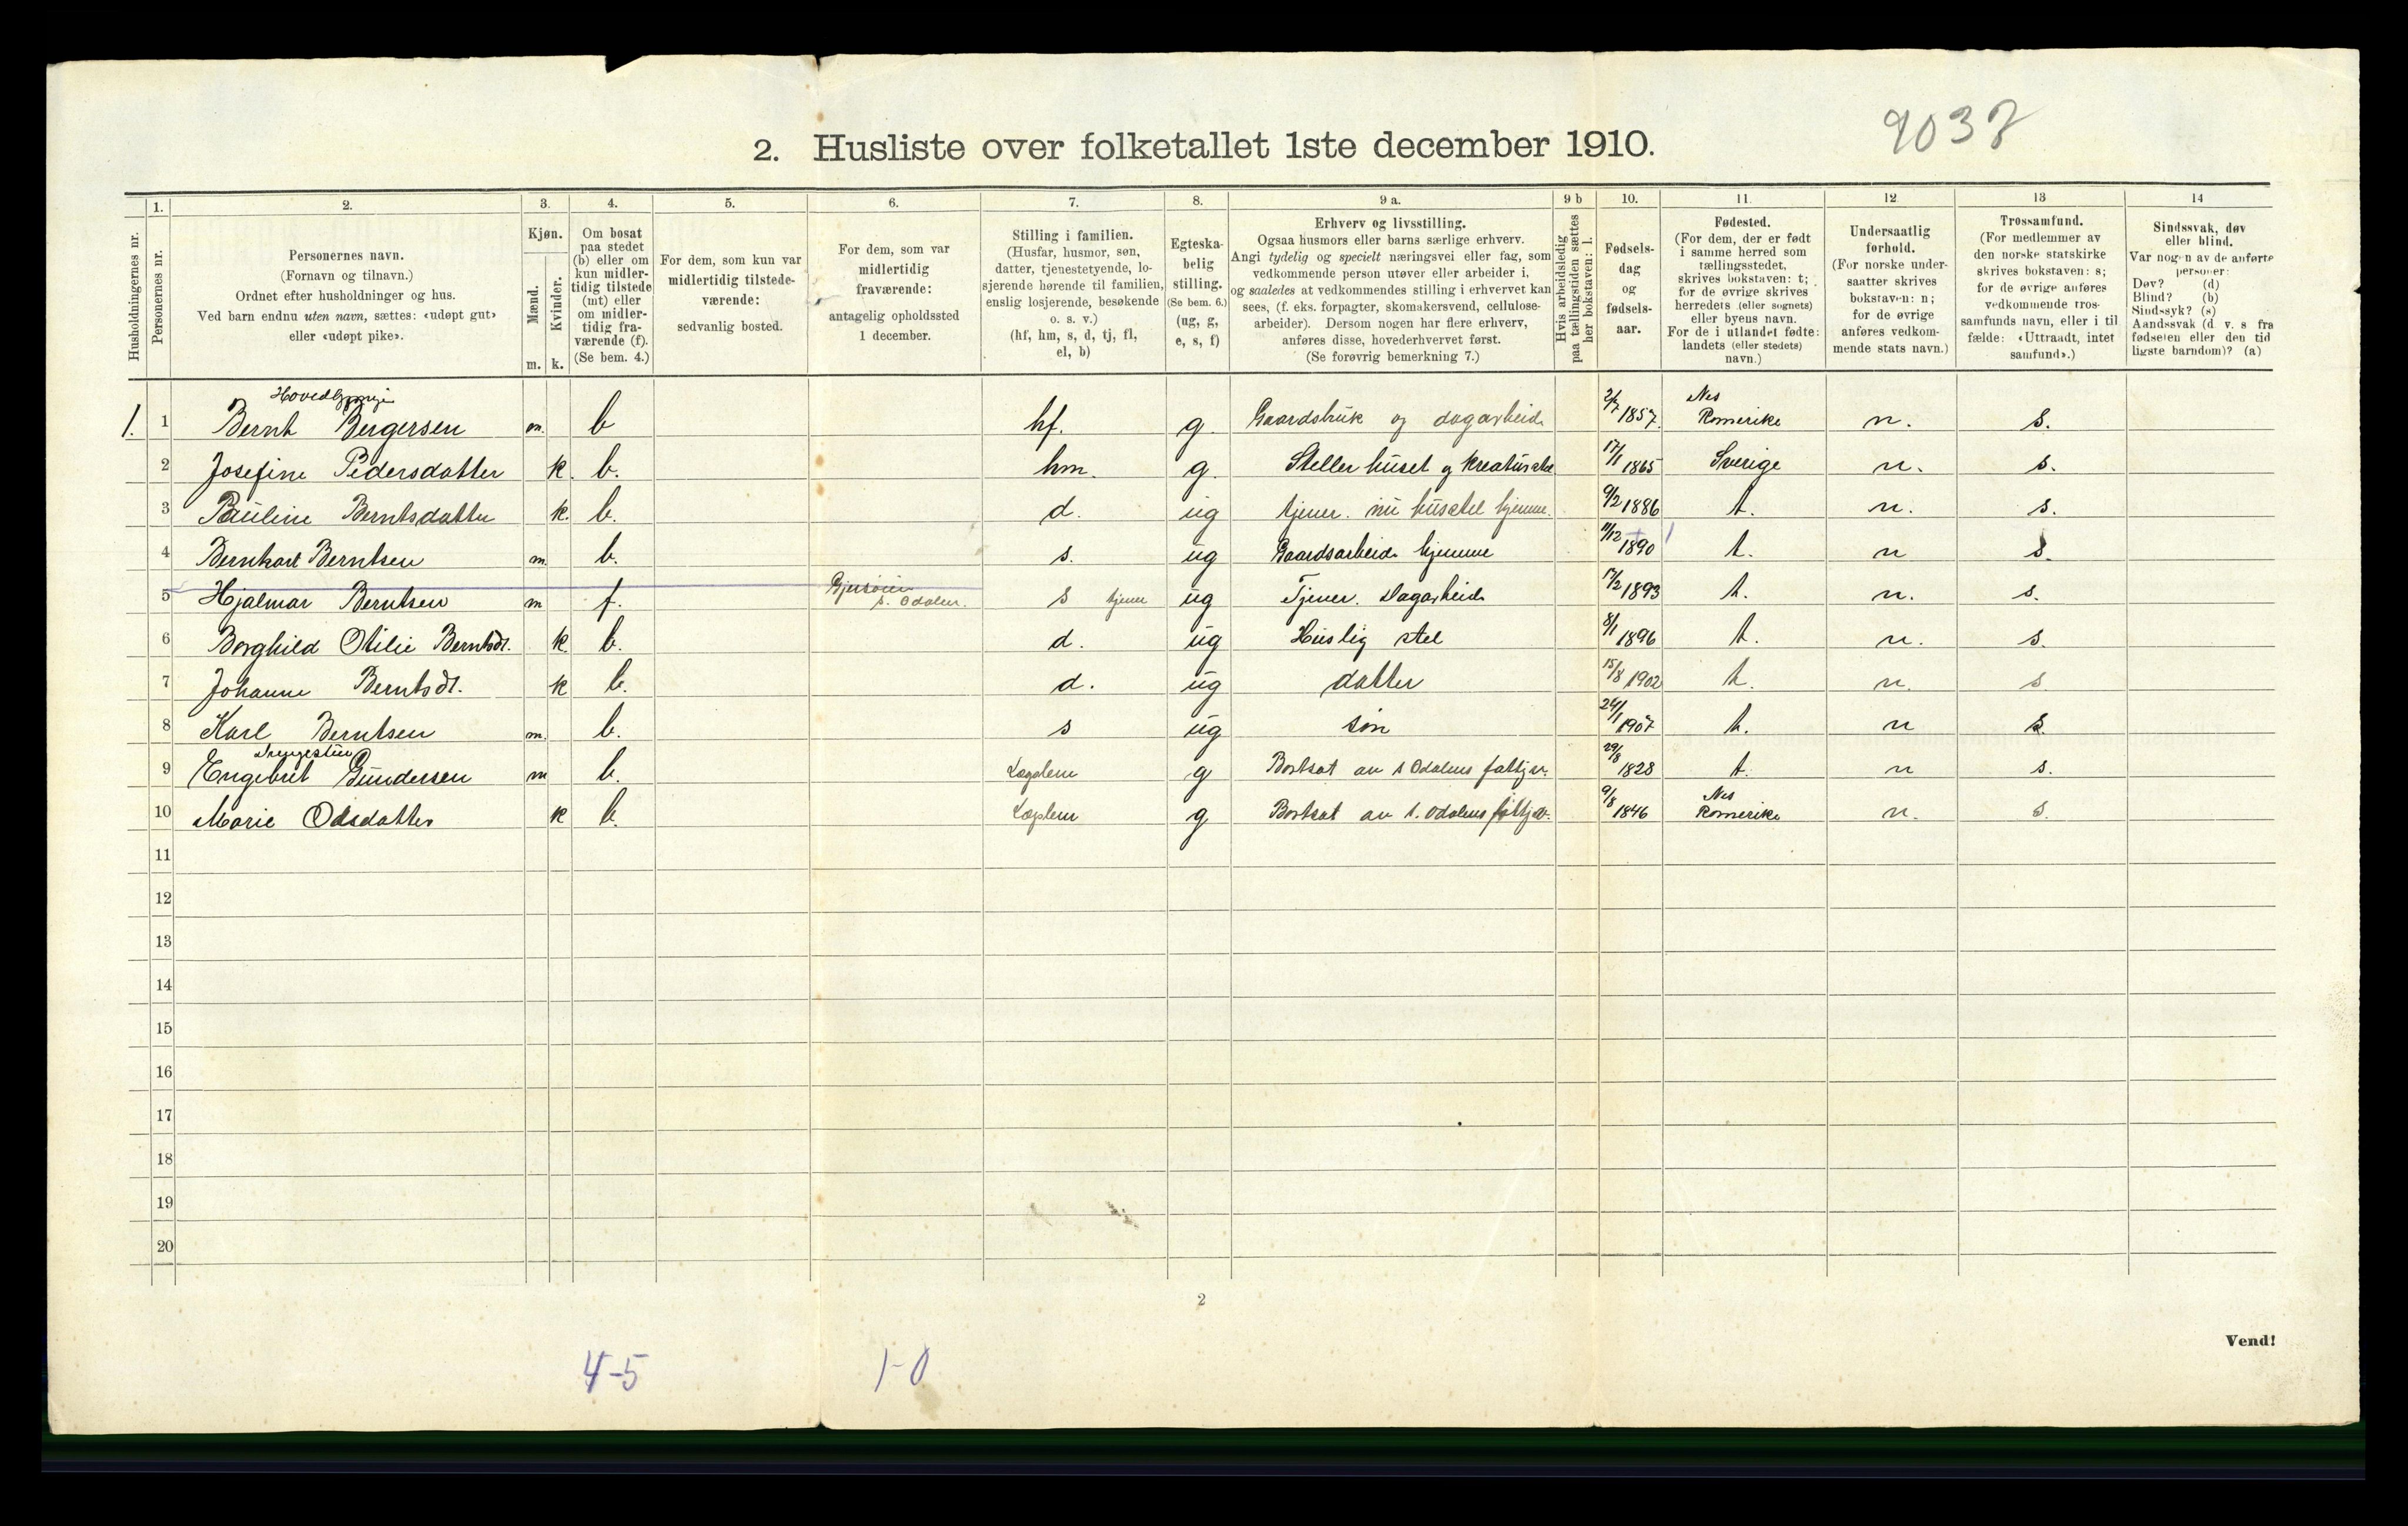 9037
2. Husliste over folketallet 1ste december 1910.
1. 2. 3. 4. 5. 6. 7. 8. 9 a. 9 b 10. 11. 12 13 14
Husholdningernes nr.
Personernes nr.
Personernes navn.
(Fornavn og tilnavn.)
Ordnet efter husholdninger og hus.
Ved barn endnu uten navn, sættes: «udøpt gut»
eller «udøpt pike».
Kjøn.
Mænd.
Kvinder.
m. k.
Om bosat
paa stedet
(b) eller om
kun midler-
tidig tilstede
(mt) eller
om midler-
tidig fra-
værende (f).
(Se bem. 4.)
For dem, som kun var
midlertidig tilstede-
værende:
sedvanlig bosted.
For dem, som var
midlertidig
fraværende:
antagelig opholdssted
1 december.
Stilling i familien.
(Husfar, husmor, søn,
datter, tjenestetyende, lo-
sjerende hørende til familien,
enslig losjerende, besøkende
o. s. v.)
(hf, hm, s, d, tj, fl,
el, b)
Egteska-
belig
stilling.
(Se bem. 6.)
(ug, g,
e, s, f)
Erhverv og livsstilling.
Ogsaa husmors eller barns særlige erhverv.
Angi tydelig og specielt næringsvei eller fag, som
vedkommende person utøver eller arbeider i,
og saaledes at vedkommendes stilling i erhvervet kan
sees, (f. eks. forpagter, skomakersvend, cellulose-
arbeider). Dersom nogen har flere erhverv,
anføres disse, hovederhvervet først.
(Se forøvrig bemerkning 7.)
Hvis arbeidsledig
paa tællingstiden sættes
her bokstaven: l.
Fødsels-
dag
og
fødsels-
aar.
Fødested.
(For dem, der er født
i samme herred som
tællingsstedet,
skrives bokstaven: t;
for de øvrige skrives
herredets (eller sognets)
eller byens navn.
For de i utlandet fødte:
landets (eller stedets)
navn.)
Undersaatlig
forhold.
(For norske under-
saatter skrives
bokstaven: n;
for de øvrige
anføres vedkom-
mende stats navn.)
Trossamfund.
(For medlemmer av
den norske statskirke
skrives bokstaven: s;
for de øvrige anføres
vedkommende tros-
samfunds navn, eller i til
fælde: «Uttraadt, intet
samfund».)
Sindssvak, døv
eller blind.
Var nogen av de anførte
personer:
Døv? (d)
Blind? (b)
Sindssyk? (s)
Aandssvak (d. v. s. fra
fødselen eller den tid
ligste barndom)? (a)
1. 1 Bernt Bergersen m. b hf. g. Gaardsbruk og dagarbeid 2/7 1857. Nes Romerike n. s.
2 Josefine Pedersdatter k. b. hm. g. Steller huset og kreaturstel 17/1 1865 Sverige n. s.
3 Pauline Berntsdatter k. b. d. ug tjener. nu husstel hjemme. 9/2 1886 t. n. s.
4 Bernhart Berntsen m. b. s. ug Gaardsarbeide hjemme 11/12 1890 t. n s.
5 Hjalmar Berntsen m f. S. Odalen. s tjener ug Tjener. Dagarbeide 17/2 1893 t. n. s.
6 Borghild Otilie Berntsdt. k b. d. ug Huslig stel 8/1 1896 t. n. s.
7 Johanne Berntsdt. k b. d. ug datter 15/8 1902 t. n. s
8 Karl Berntsen m. b. s ug søn 24/1 1907 t. n s.
9 Engebret Gundersen m b. Læglem g Bortsat av s Odalens fattigv. 29/8 1828 t. n s.
10 Marie Olsdatter k b. Læglem g Bortsat av s. Odalens fattigv. 9/8 1846 Nes Romerike n. s.
11
12
13
14
15
16
17
18
19
20
2
Vend!
4-5 1-0